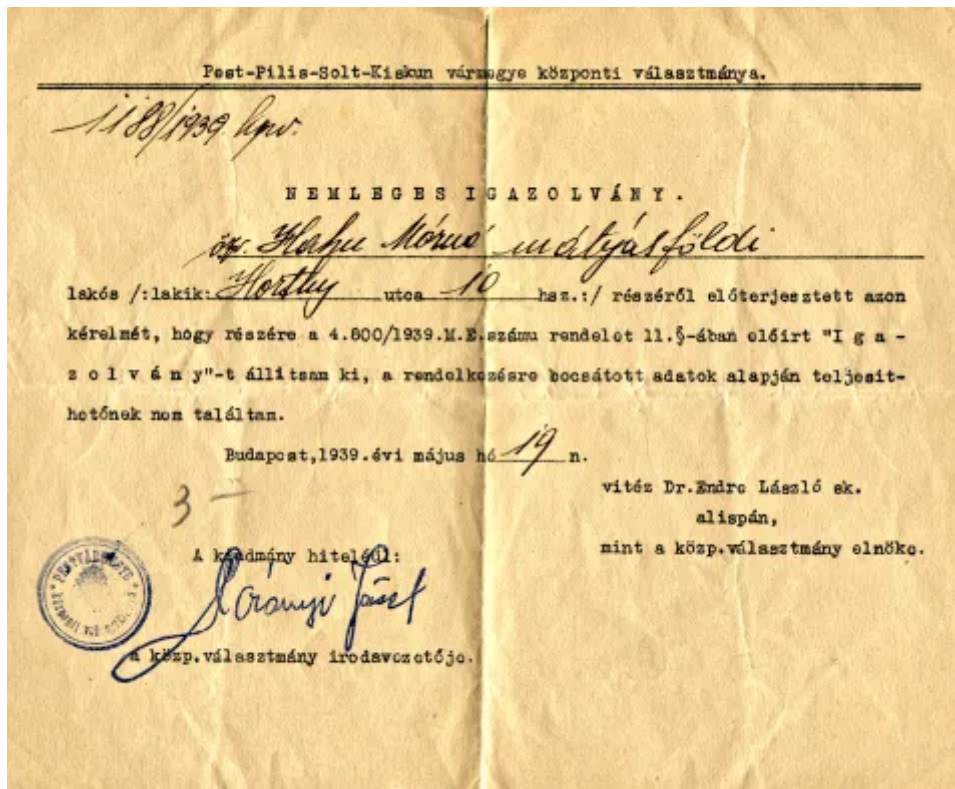 Pest-Pilis-Solt-Kiskun vármegye központi választmánya.
1188/1939. kpv.
NEMLEGES IGAZOLVÁNY.
özv. Hahn Mórné mátyásföldi
lakós /:lakik: Horthy utca 10 hsz.:/ részéről előterjesztett azon
kérelmét, hogy részére a 4.800/1939.M.E.számu rendelet 11.§-ában előirt "I g a -
z o l v á n y"-t állitsam ki, a rendelkezésre bocsátott adatok alapján teljesit-
hetőnek nem találtam.
Budapest,1939.évi május hó 19 n.
vitéz Dr.Endre László sk.
alispán,
mint a közp.választmány elnöke.
3 —
A kiadmány hiteléül:
József
a közp.választmány irodavezetője.